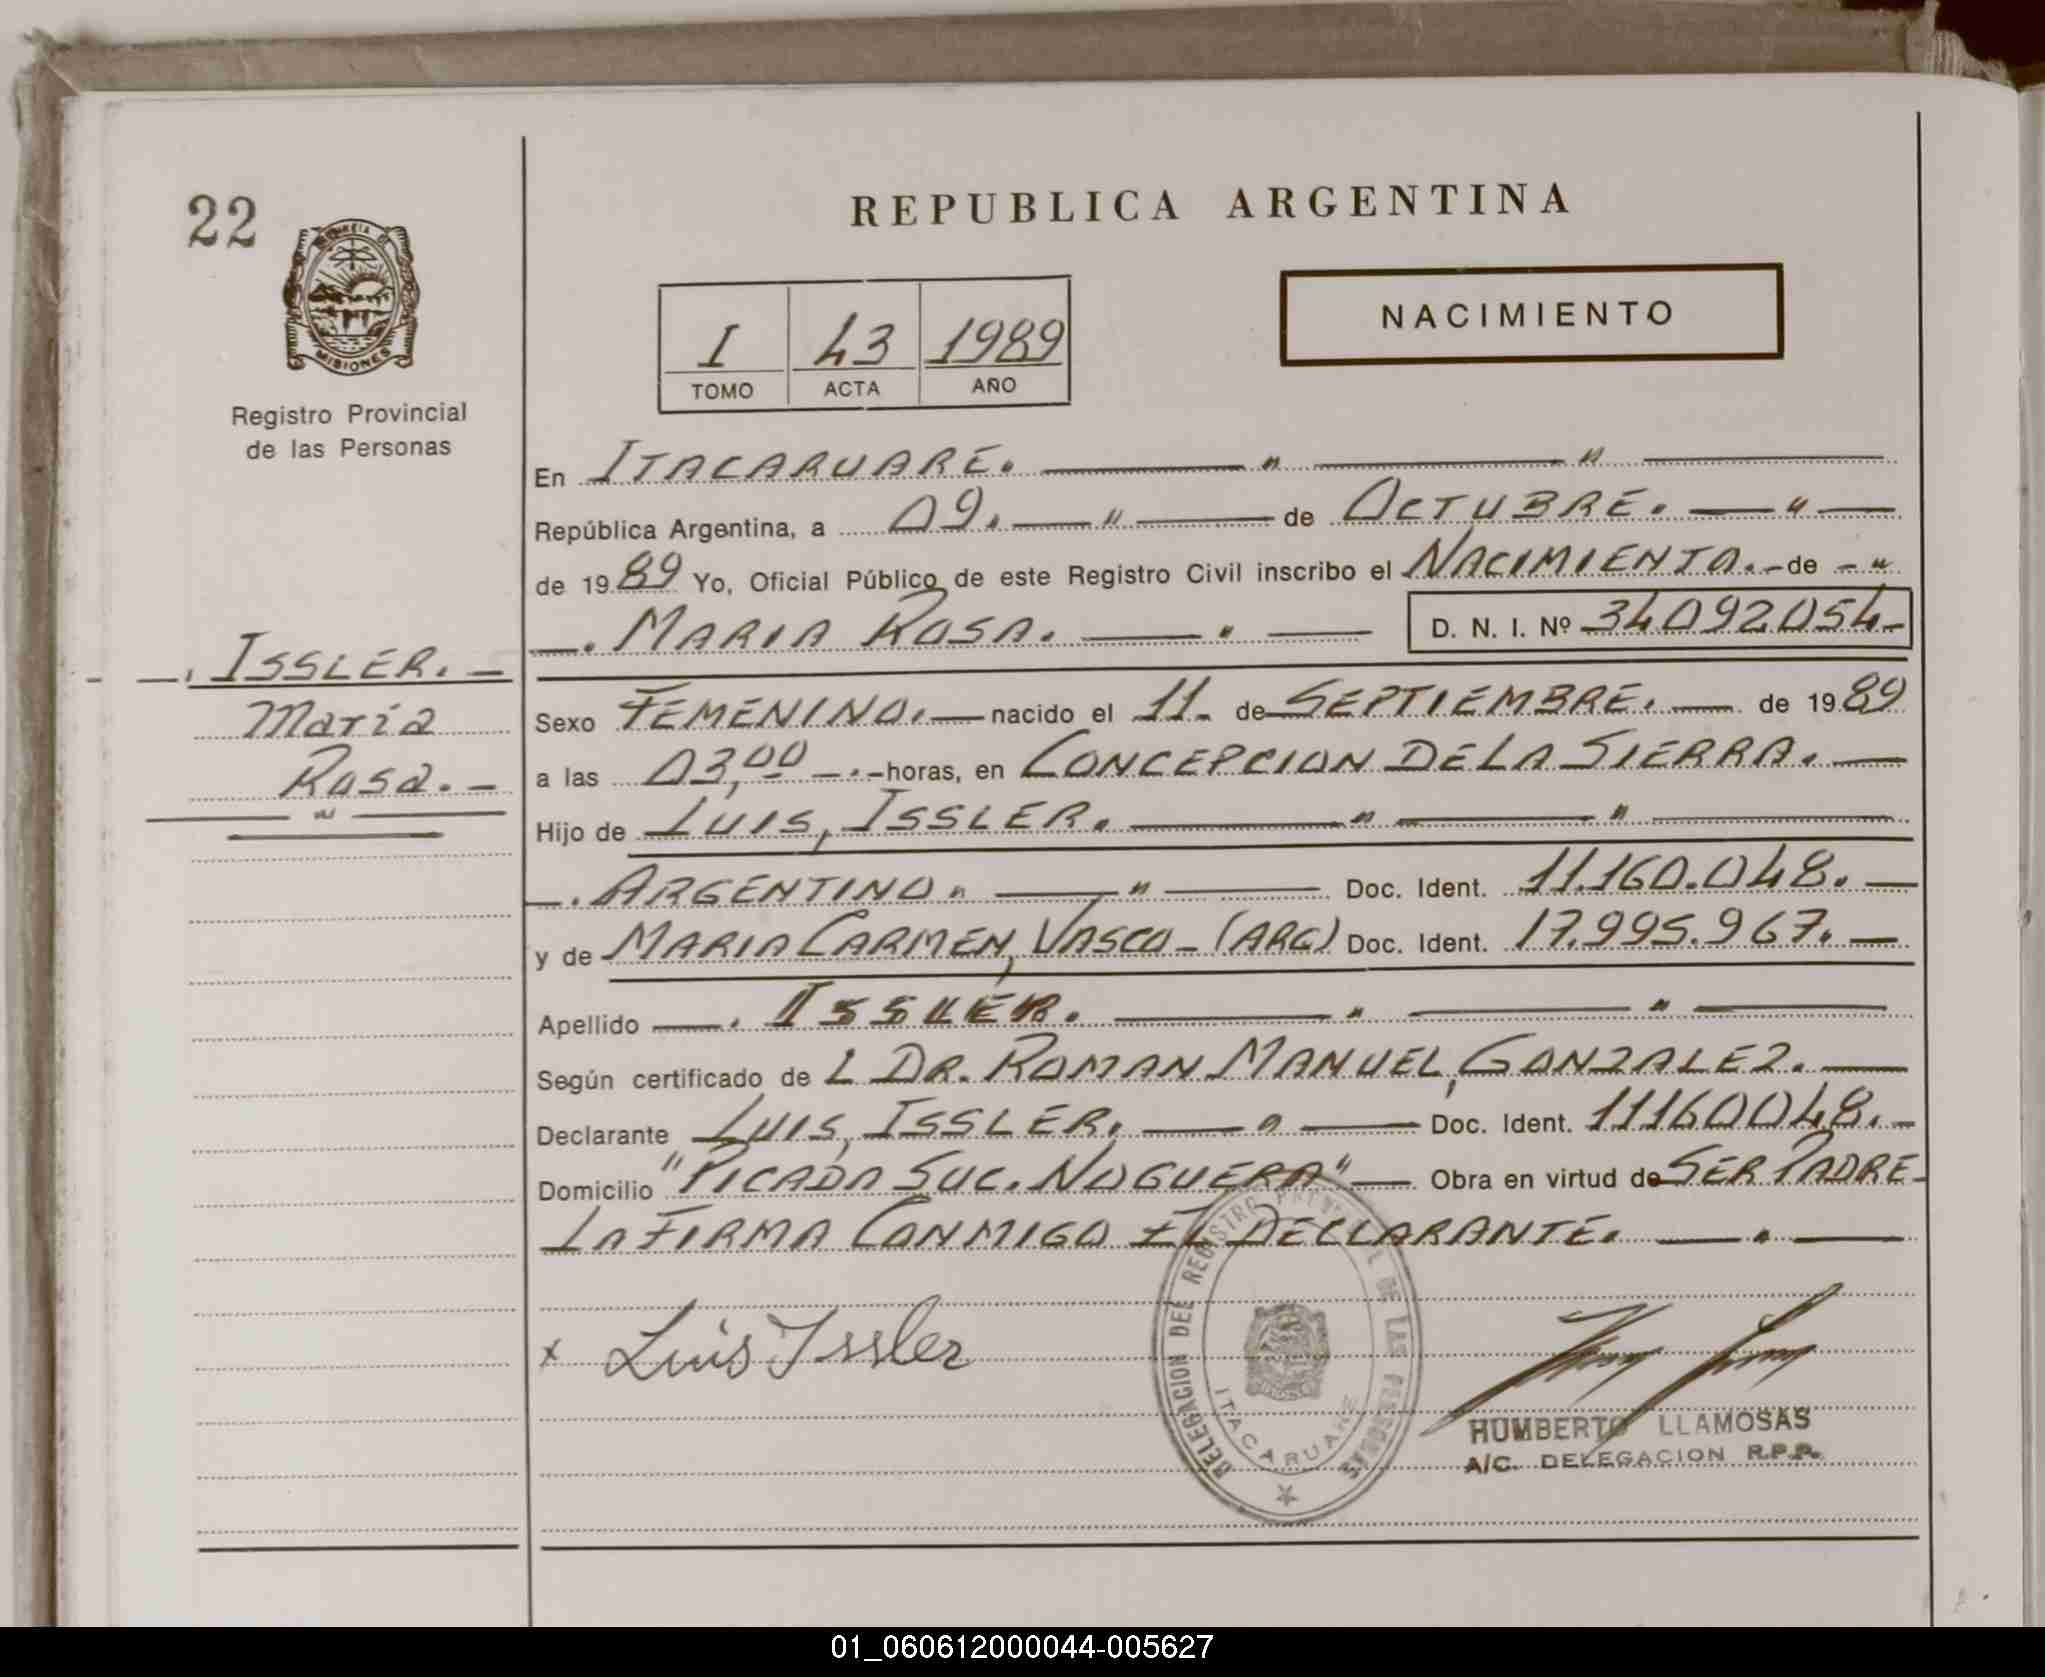 22
MISIONES
Registro Provincial
de las Personas
REPUBLICA ARGENTINA
I 43 1989
TOMO ACTA AÑO
NACIMIENTO
En ITACARUARE.
República Argentina, a 09. de OCTUBRE.
de 1989 Yo, Oficial Público de este Registro Civil inscribo el NACIMIENTO. de
MARIA ROSA. D. N. I. Nº 34092054
ISSLER.
Maria
Rosa.
Sexo FEMENINO. nacido el 11 de SEPTIEMBRE. de 1989
a las 03,00 horas, en CONCEPCION DE LA SIERRA.
Hijo de LUIS, ISSLER.
ARGENTINO Doc. Ident. 11.160.048.
y de MARIA CARMEN, VASCO - (ARG) Doc. Ident. 17.995.967.
Apellido ISSLER.
Según certificado de L DR. ROMAN MANUEL, GONZALEZ.
Declarante LUIS, ISSLER. Doc. Ident. 11160048.
Domicilio "PICADA SUC. NOGUERA" Obra en virtud de SER PADRE
LA FIRMA CONMIGO EL DECLARANTE.
x Luis Issler
DELEGACION DEL REGISTRO PROVINCIAL DE LAS PERSONAS
ITACARUARE
HUMBERTO LLAMOSAS
A/C. DELEGACION R.P.P.
01_060612000044-005627